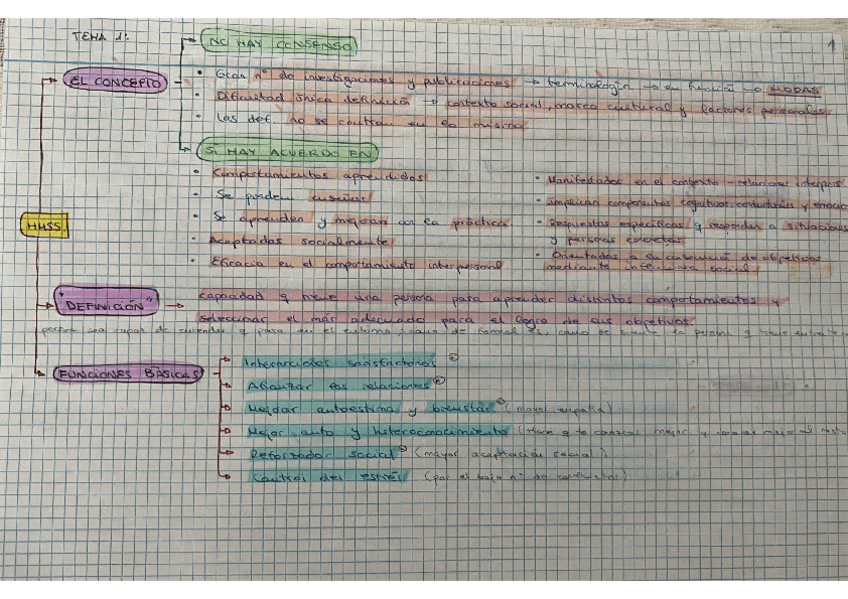 TEMA 1:
1
NO HAY CONSENSO
EL CONCEPTO
• Gran nº de investigaciones y publicaciones → terminología → en función → MODAS
• Dificultad única definición → contexto social, marco cultural y factores personales
• Las def. no se centran en lo mismo
SI HAY ACUERDO EN
• Comportamientos aprendidos
• Se pueden enseñar
• Se aprenden y mejoran con la práctica
• Aceptadas socialmente
• Eficacia en el comportamiento interpersonal
• Manifestados en el contexto - relaciones interpers
• Implican componentes cognitivos, conductuales y emocio
• Respuestas específicas q responden a situaciones
y personas concretas
• Orientadas a la consecución de objetivos
mediante influencia social
HHSS
"DEFINICIÓN"
capacidad q tiene una persona para aprender distintos comportamientos y
seleccionar el más adecuado para el logro de sus objetivos.
persona sea capaz de entender q pasa en el entorno, la persona q tiene
FUNCIONES BÁSICAS
Interacciones satisfactorias
Afianzar las relaciones
Mejorar autoestima y bienestar (mayor empatía)
Mejor auto y heteroconocimiento (Hace q te conozcas mejor y
Reforzador social (mayor aceptación social)
Control del estrés (por el bajo nº de conflictos)